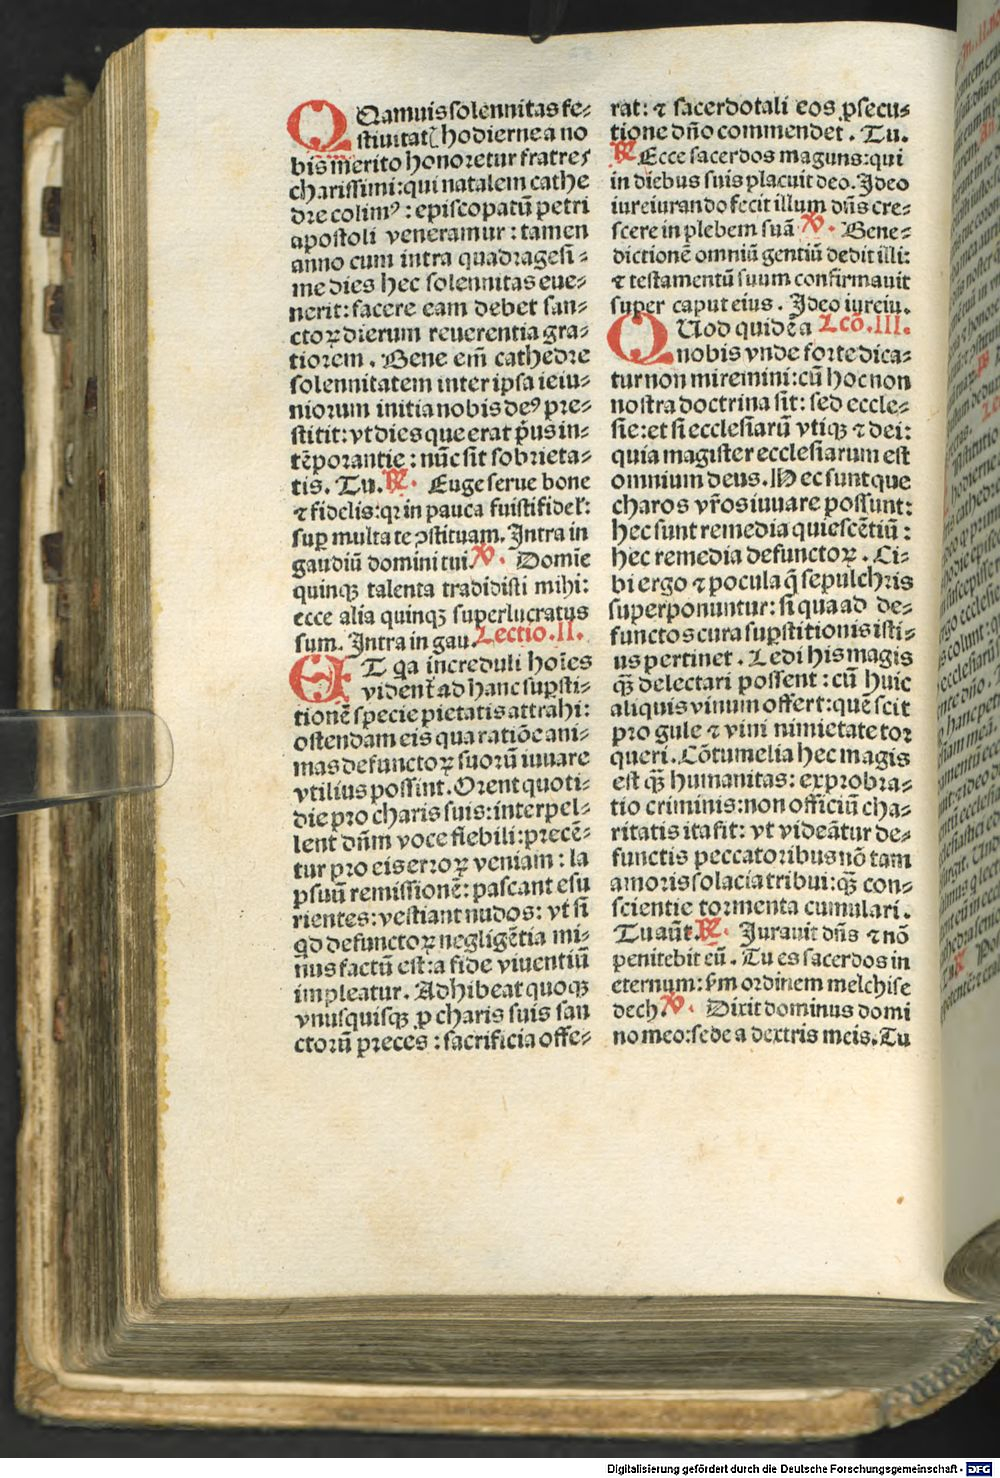 QUamuis solennitas fe⸗
stiuitatꝭ hodierne a no
bis merito honoretur fratres
charissimi: qui natalem cathe
dre colimꝰ: episcopatū petri
apostoli veneramur: tamen
anno cum intra quadragesi⸗
me dies hec solennitas eue⸗
nerit: facere eam debet san⸗
ctoꝝ dierum reuerentia gra⸗
tiorem. Bene em̄ cathedre
solennitatem inter ipsa ieiu⸗
niorum initia nobis deꝰ pre⸗
stitit: vt dies que erat pͥus in⸗
tēporantie: nūc sit sobrieta⸗
tis. Tu. ℟. Euge serue bone
⁊ fidelis: qꝛ in pauca fuisti fidel̕:
suꝑ multa te ꝯstituam. Intra in
gaudiū domini tui. ℣. Domīe
quinqꝫ talenta tradidisti mihi:
ecce alia quinqꝫ superlucratus
sum. Intra in gau. Lectio. II.
ET qa increduli hoīes
vident̄ ad hanc suꝑsti⸗
tionē specie pietatis attrahi:
ostendam eis qua ratiōe ani⸗
mas defunctoꝝ suorū iuuare
vtilius possint. Orent quoti⸗
die pro charis suis: interpel⸗
lent dn̄m voce flebili: precē⸗
tur pro eis erroꝝ veniam: la
psuū remissionē: pascant esu
rientes: vestiant nudos: vt si
qd defunctoꝝ negligētia mi⸗
nus factū est: a fide viuentiū
impleatur. Adhibeat quoqꝫ
vnusquisqꝫ ꝓ charis suis san
ctorū preces: sacrificia offe⸗
rat: ⁊ sacerdotali eos ꝓsecu⸗
tione dn̄o commendet. Tu.
℟ Ecce sacerdos maguns: qui
in diebus suis placuit deo. Ideo
iureiurando fecit illum dn̄s cre⸗
scere in plebem suā ℣. Bene⸗
dictionē omniū gentiū dedit illi:
⁊ testamentū suum confirmauit
super caput eius. Ideo iureiu.
QUod quidē a Lcō. III.
nobis vnde forte dica⸗
tur non miremini: cū hoc non
nostra doctrina sit: sed eccle⸗
sie: et si ecclesiarū vtiqꝫ ⁊ dei:
quia magister ecclesiarum est
omnium deus. Hec sunt que
charos vr̄os iuuare possunt:
hec sunt remedia quiescētiū:
hec remedia defunctoꝝ. Ci⸗
bi ergo ⁊ pocula q̄ sepulchris
superponuntur: si qua ad de⸗
functos cura suꝑstitionis isti⸗
us pertinet. Ledi his magis
qꝫ̄ delectari possent: cū huic
aliquis vinum offert: quē scit
pro gule ⁊ vini nimietate tor
queri. Cōtumelia hec magis
est qꝫ̄ humanitas: exprobra⸗
tio criminis: non officiū cha⸗
ritatis ita fit: vt videātur de⸗
functis peccatoribus nō tam
amoris solacia tribui: qꝫ̄ con⸗
scientie tormenta cumulari.
Tu aūt. ℟. Iurauit dn̄s ⁊ nō
penitebit eū. Tu es sacerdos in
eternum: ẜm ordinem melchise
dech ℣. Dixit dominus domi
no meo: sede a dextris meis. Tu
Digitalisierung gefördert durch die Deutsche Forschungsgemeinschaft - DFG